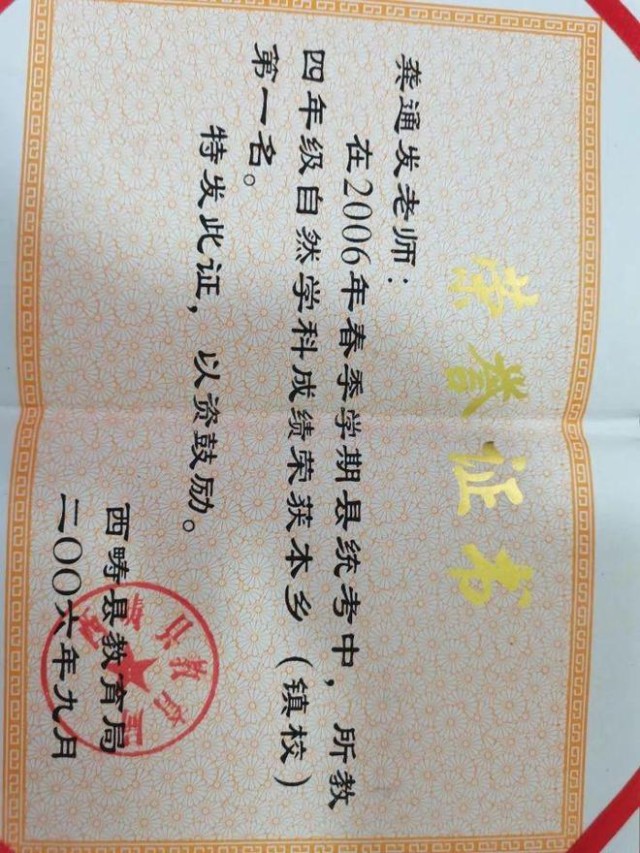 荣誉证书
龚通发老师：
在2006年春季学期县统考中，所教
四年级自然学科成绩荣获本乡（镇校）
第一名。
特发此证，以资鼓励。
西畴县教育局
二〇〇六年九月